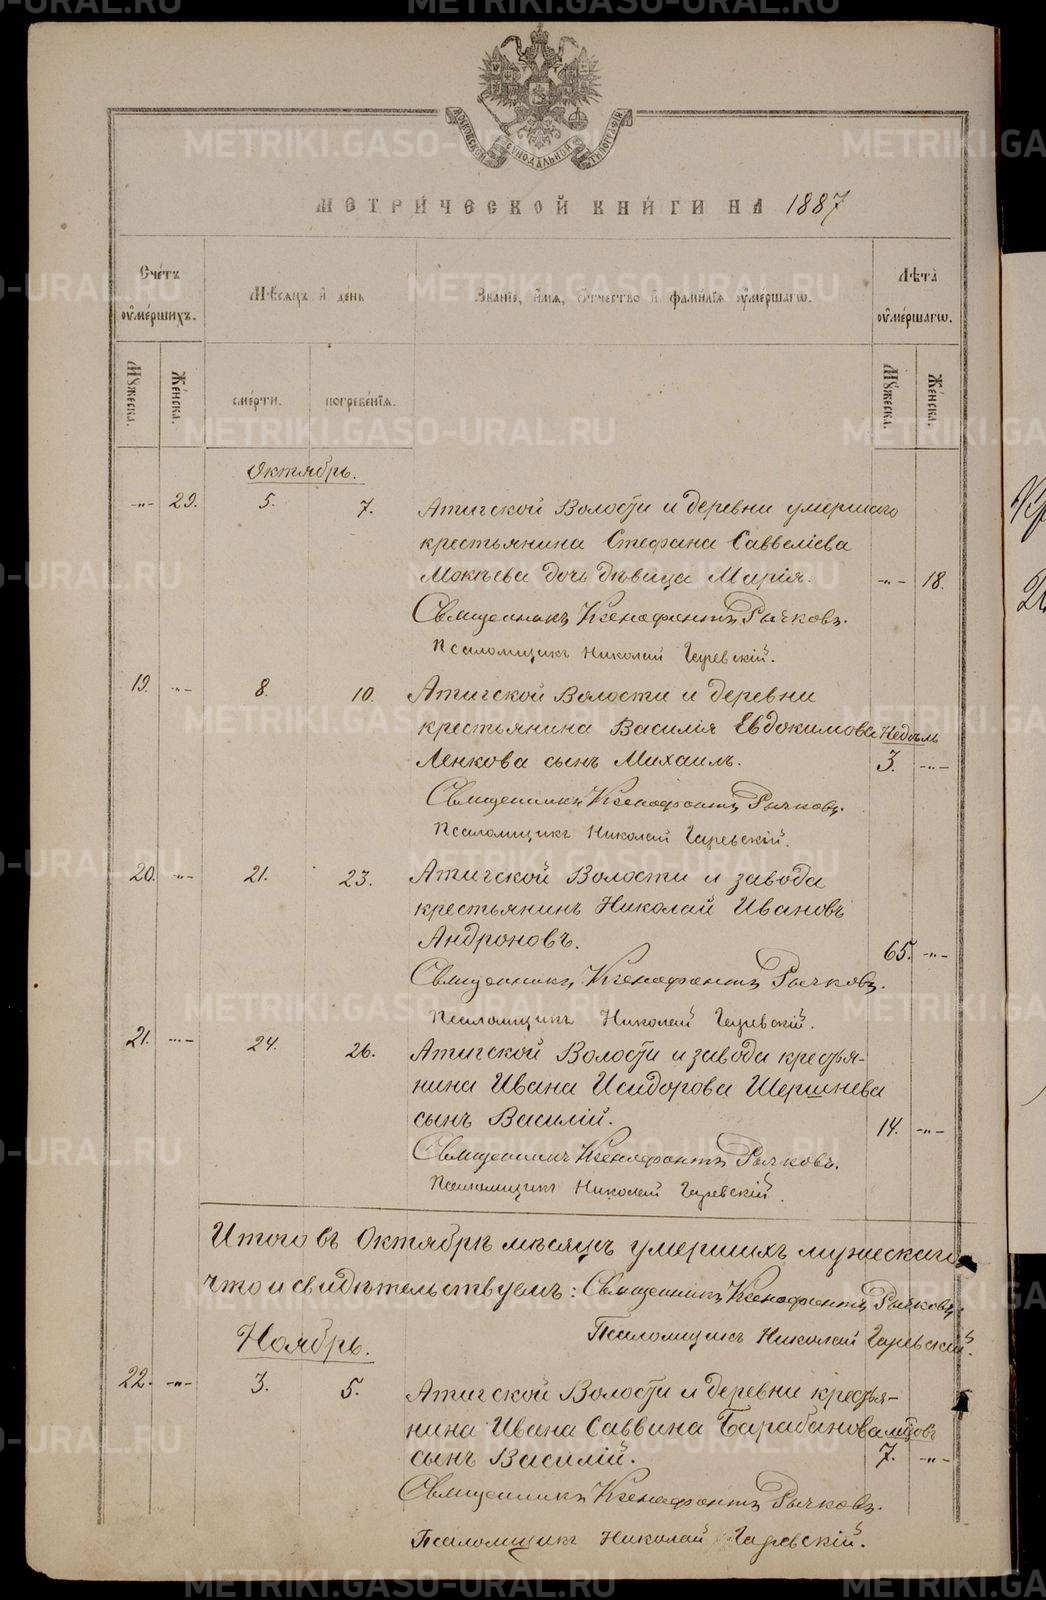 МОСКОВСКОЙ СѴНОДАЛЬНОЙ ТИПОГРАФІИ
МЕТРИ́ЧЕСКОЙ КНИ́ГИ НА 1887
Сче́тъ ᲂу҆ме́ршихъ.
Мѣ́сѧцъ и҆ де́нь
Зва́нїе, и҆́мѧ, ѻ҆́тчество и҆ фами́лїѧ ᲂу҆ме́ршагѡ.
Лѣта̀ ᲂу҆ме́ршагѡ.
Мꙋ́жеска.
Же́нска.
сме́рти.
погребе́нїѧ.
Мꙋ́жеска.
Же́нска.
Октябрь.
-"- 29. 5. 7. Атигской Волости и деревни умершаго
крестьянина Стефана Саввеліева
Мокѣева дочь дѣвица Марія. -"- 18.
Священникъ Ксенофонтъ Рычковъ.
Псаломщикъ Николай Гаревскій.
19. -"- 8. 10. Атигской Волости и деревни
крестьянина Василія Евдокимова недѣль
Ленкова сынъ Михаилъ. 3. -"-
Священникъ Ксенофонтъ Рычковъ.
Псаломщикъ Николай Гаревскій.
20. -"- 21. 23. Атигской Волости и завода
крестьянинъ Николай Ивановъ
Андроновъ. 65. -"-
Священникъ Ксенофонтъ Рычковъ.
Псаломщикъ Николай Гаревскій.
21. -"- 24. 26. Атигской Волости и завода крестья-
нина Ивана Исидорова Шершнева
сынъ Василій. 14. -"-
Священникъ Ксенофонтъ Рычковъ.
Псаломщикъ Николай Гаревскій.
Итого въ Октябрѣ мѣсяцѣ умершихъ мужескаго
что и свидѣтельствуемъ: Священникъ Ксенофонтъ Рычковъ.
Псаломщикъ Николай Гаревскій.
Ноябрь.
22. -"- 3. 5. Атигской Волости и деревни крестья-
нина Ивана Саввина Барабанова мѣсцовъ
сынъ Василій. 7. -"-
Священникъ Ксенофонтъ Рычковъ.
Псаломщикъ Николай Гаревскій.
METRIKI.GASO-URAL.RU